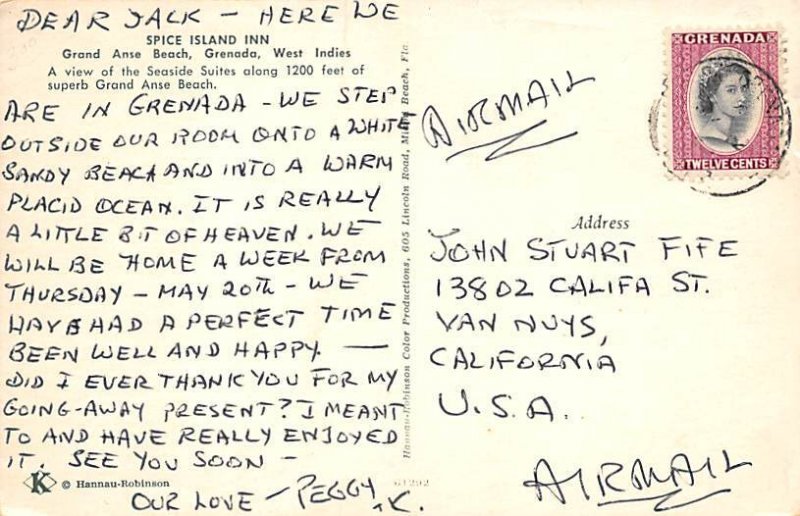 DEAR JACK - HERE WE
SPICE ISLAND INN
Grand Anse Beach, Grenada, West Indies
A view of the Seaside Suites along 1200 feet of
superb Grand Anse Beach.
ARE IN GRENADA - WE STEP
OUTSIDE OUR ROOM ONTO A WHITE
SANDY BEACH AND INTO A WARM
PLACID OCEAN. IT IS REALLY
A LITTLE BIT OF HEAVEN. WE
WILL BE HOME A WEEK FROM
THURSDAY - MAY 20TH - WE
HAVE HAD A PERFECT TIME
BEEN WELL AND HAPPY. —
DID I EVER THANK YOU FOR MY
GOING-AWAY PRESENT? I MEANT
TO AND HAVE REALLY ENJOYED
IT. SEE YOU SOON -
K © Hannau-Robinson
OUR LOVE - PEGGY, K.
Hannau-Robinson Color Productions, 605 Lincoln Road, Miami Beach, Fla.
61292
GRENADA
TWELVE CENTS
AIRMAIL
Address
JOHN STUART FIFE
13802 CALIFA ST.
VAN NUYS,
CALIFORNIA
U.S.A.
AIRMAIL